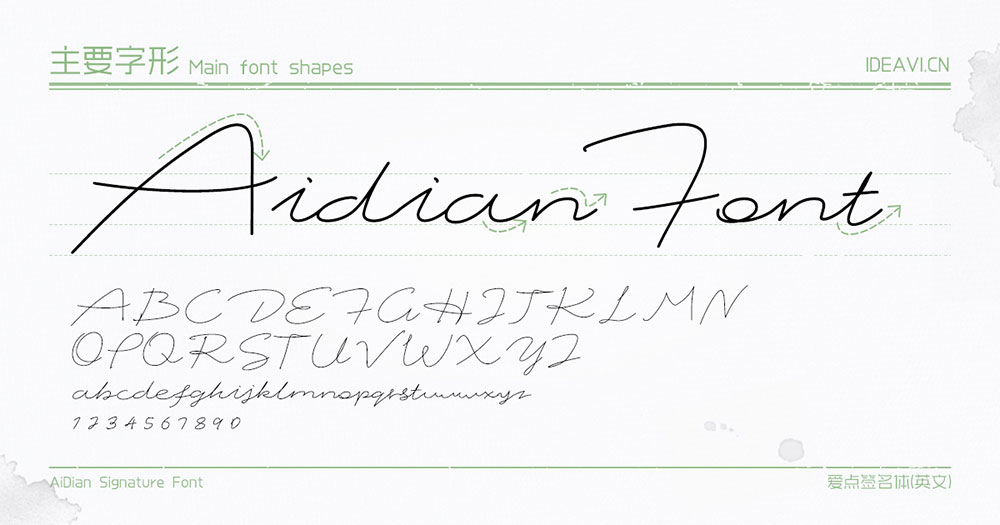 主要字形 Main font shapes
IDEAVI.CN
Aidian Font
ABCDEFGHIJKLMN
OPQRSTUVWXYZ
abcdefghijklmnopqrstuvwxyz
1234567890
AiDian Signature Font
爱点签名体(英文)